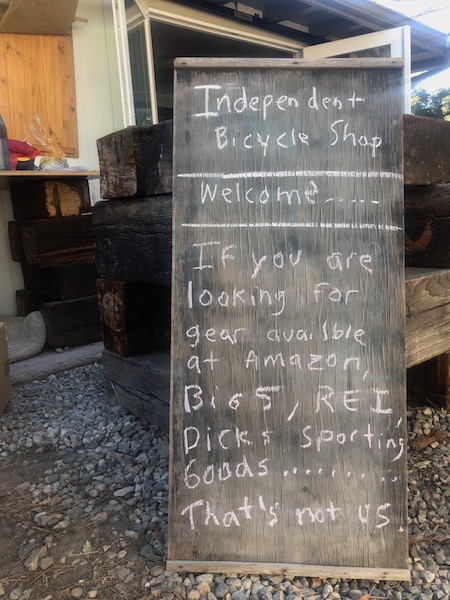 Independent
Bicycle Shop
Welcome.....
If you are
looking for
gear availble
at Amazon,
Big 5, REI,
Dick's Sporting
Goods..........
That's not us.